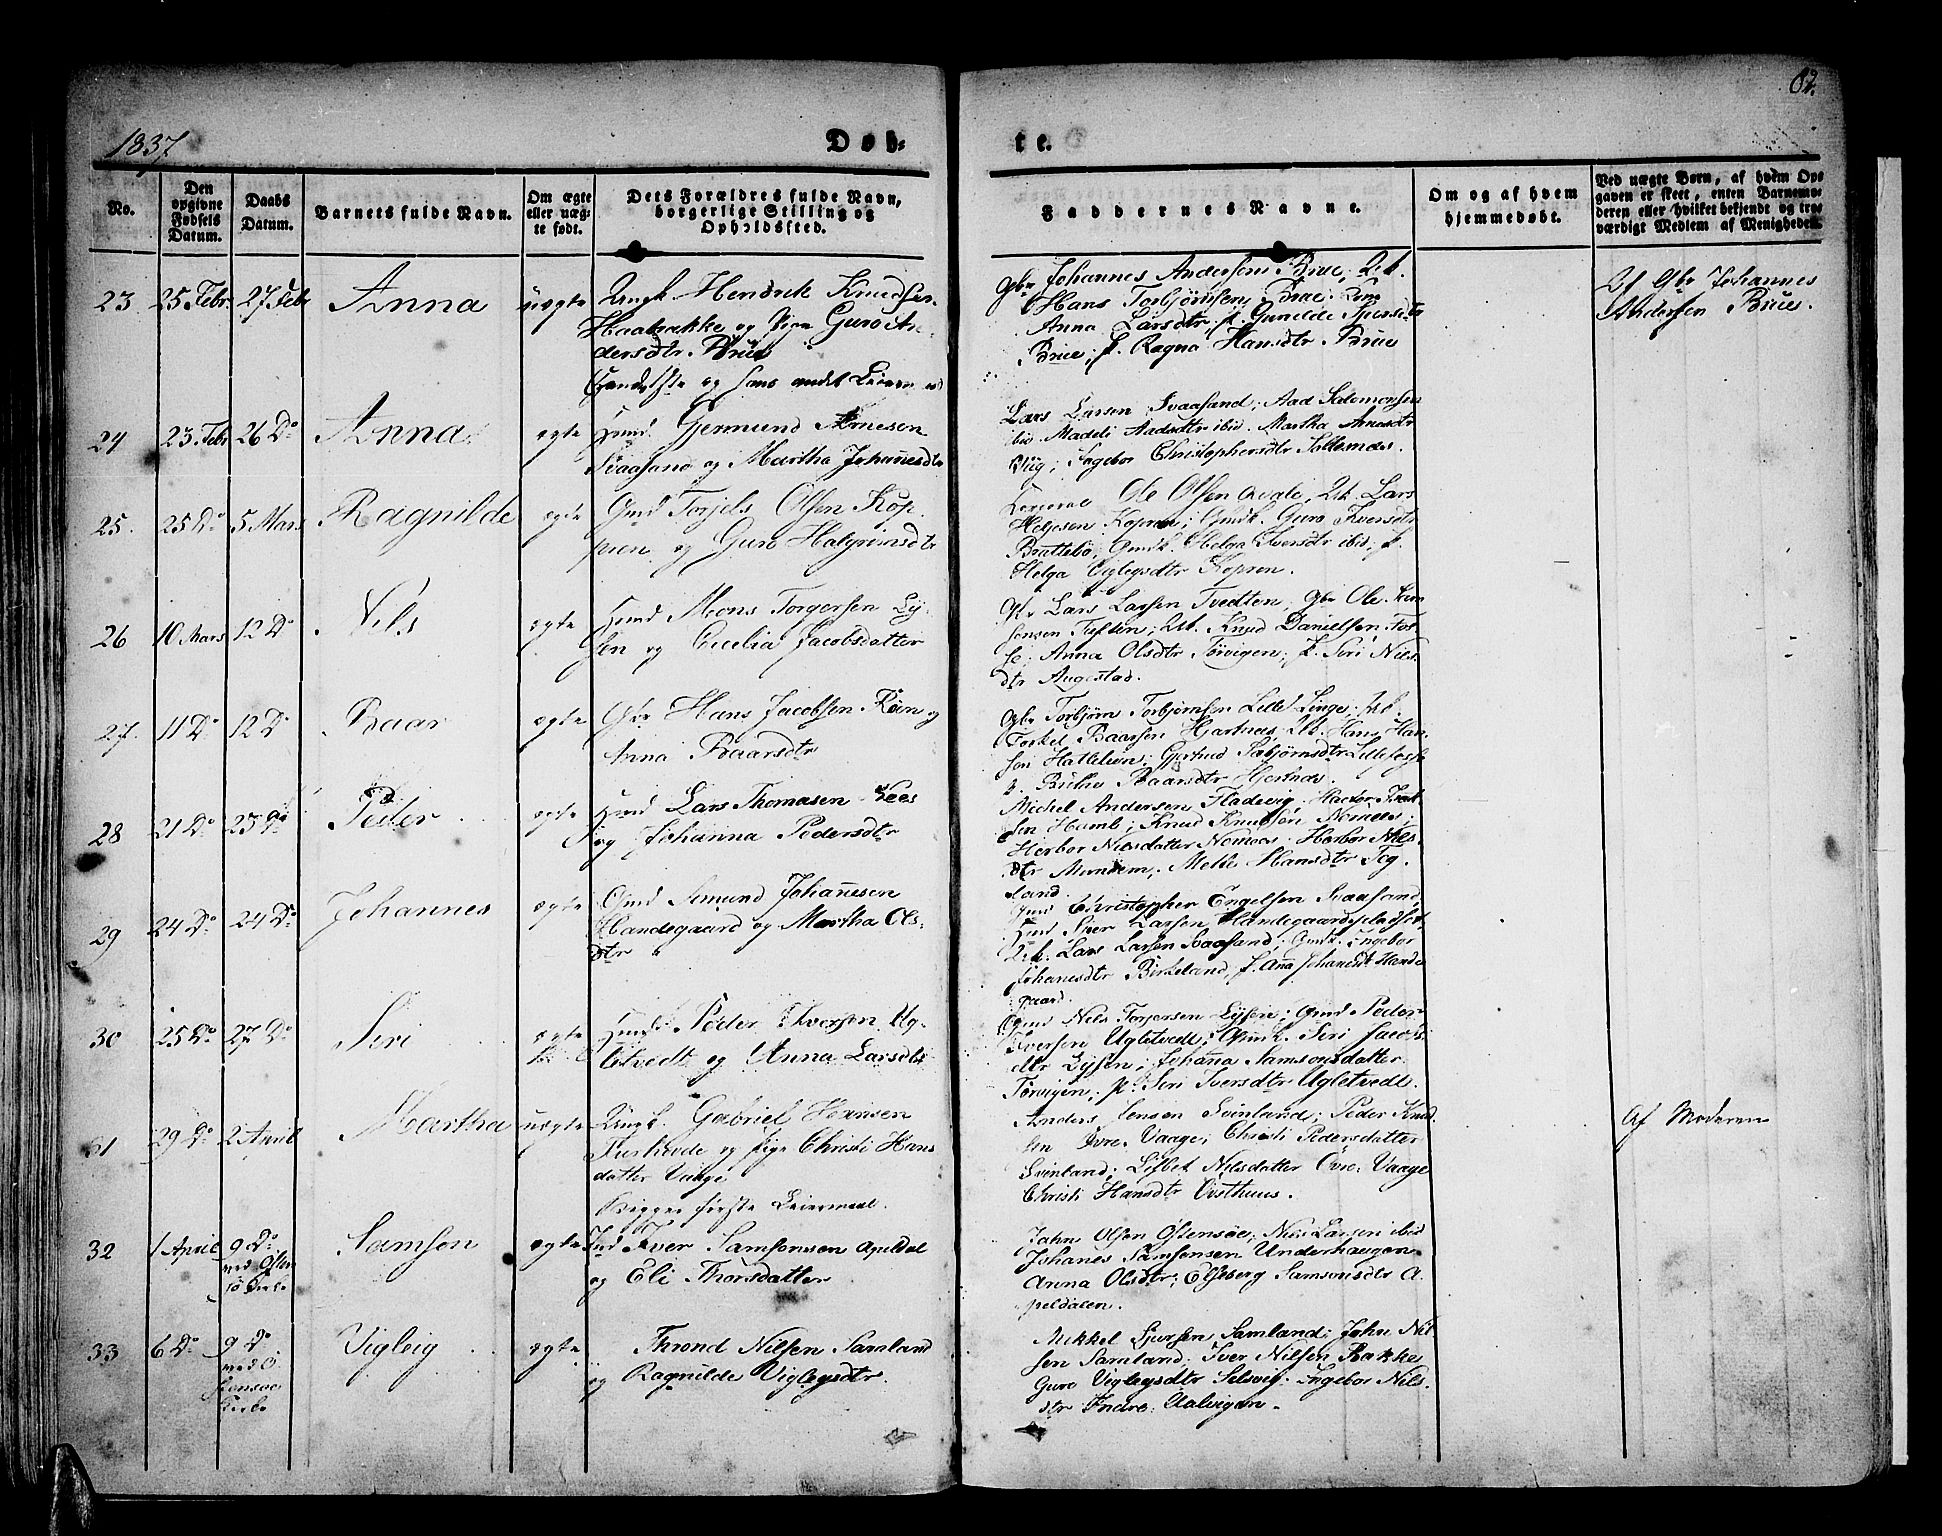 82.
1837
Døb-
te.
No.
Den opgivne Fødsels Datum.
Daabs Datum.
Barnets fulde Navn.
Om ægte eller uæg- te født.
Dets Forældres fulde Navn, borgerlige Stilling og Opholdssted.
Faddernes Navne.
Om og af hvem hjemmedøbt.
Ved uægte Børn, af hvem Op- gaven er skeet, enten Barnemo- deren eller hvilket bekjendt og tro- værdigt Medlem af Menigheden.
23 25 Febr. 27 Febr Anna uægte
Ungk Hendrik Knudsen
Haabakke og Pige Guro An-
dersdtr. Brue
Gbr Johannes Andersen Brue; Uk.
Hans Torbjørnsen Brue; Kone
Anna Larsdtr; p. Gunilde Sjursdtr
Brue; p. Ragna Hansdtr Brue
Af Gbr Johannes
Andersen Brue.
24 23 Febr 26 Do Anna ægte
Huusmd. Germund Arnesen
Svaasand og Martha Johannesdtr
Lars Larsen Svaasand; Aad Salomonsen
ibid. Madeli Aadsdtr ibid. Martha Arnesdtr
Ingebor Christophersdtr
25. 25 Do 5 Mars Ragnilde ægte
Gmd Torjels Olsen Kop-
pren og Guro Halgrimsdtr
Ole Olsen Uk. Lars
Helgesen Kopren; Gmdk. Guro Iversdtr
Brattebø; Gmdk. Helga Iversdtr ibid; p.
Helga Viglegsdtr Kopren.
26 10 Mars 12 Do Nels ægte
Huusmd Mons Torgersen Ly-
sen og Cecelia Jacobsdatter
Gbr Lars Larsen Tvedten; Gbr Ole Sam-
sonsen Tufften; Uk. Knud Danielsen Fos-
se; Anna Olsdtr Torvigen; p. Siri Niels-
dtr Augestad.
27. 11 Do 12 Do Baar ægte
Gbr Hans Jacobsen Røen og
Anna Baarsdtr
Gbr Torbjørn Torbjørnsen Lille Linge; Uk
Torkel Baarsen Hartnes; Uk. Hans Han-
sen Hatlelien; Gjertrud Torbjørnsdtr
p. Brita Baarsdtr Hartnes.
28 21 Do 25 Do Peder ægte
Huusmd Lars Thomasen Nees
og Johanna Pedersdtr
Michel Andersen Fladevig;
Knud Knudsen Nornees;
Herbor Nilsdatter Nornees. Herbor Nils-
dtr Mundem; Melke Hansdtr Teg-
land.
29 24 Do 24 Do Johannes ægte
Gmd Simund Johanesen
Handegaard og Martha Ols-
dtr
Gmd Christopher Engelsen Svaasand,
Huusmd Sjur Larsen Handegaard
Uk. Lars Larsen Svaasand; Gmdk. Ingebor
Johanesdtr Birkeland, p. Anna Johannesdtr Hande-
gaard.
30 25 Do 27 Do Siri ægte
Huusmd Peder Iversen Ug-
letvedt og Anna Larsdtr
Gmd Nels Torjersen Lysen; Gmd Peder
Iversen Ugletvedt; Gmdk. Siri Jacobs-
dtr Lysen; Johanna Samsonsdatter
Torvigen; p. Siri Iversdtr Ugletvedt.
31 29 Do 2 April Martha uægte
Ungk. Gabriel Hansen
og Pige Christi Hans
datter Vaage.
Begges første Leiermaal.
Anders Jensen Svinland; Peder Knud-
sen Øvre-Vaage; Christi Pedersdatter
Svinland; Lisbet Nilsdatter Øvre-Vaage
Christi Hansdtr Østhuus.
Af Moderen
32 1 April 9 Do
ved Østen-
sø Kirke
Samson ægte
Iver Samsonsen Apeldal
og Eli Thorsdatter
John Olsen Ostensøe; Nils Larsen ibid
Johanes Samsonsen Underhaugen
Anna Olsdtr; Elseberg Samsonsdtr A-
peldalen.
33 6 Do 9 Do
ved Ø-
stensøe
Kirke
Vigleig ægte
Thrond Nilsen Samland
og Ragnilde Viglegsdtr.
Mikkel Sjursen Samland; John Nil-
sen Samland; Iver Nilsen Hakke
Guro Viglegsdtr Selsvig; Ingebor Nils-
dtr Indre-Aalvigen.